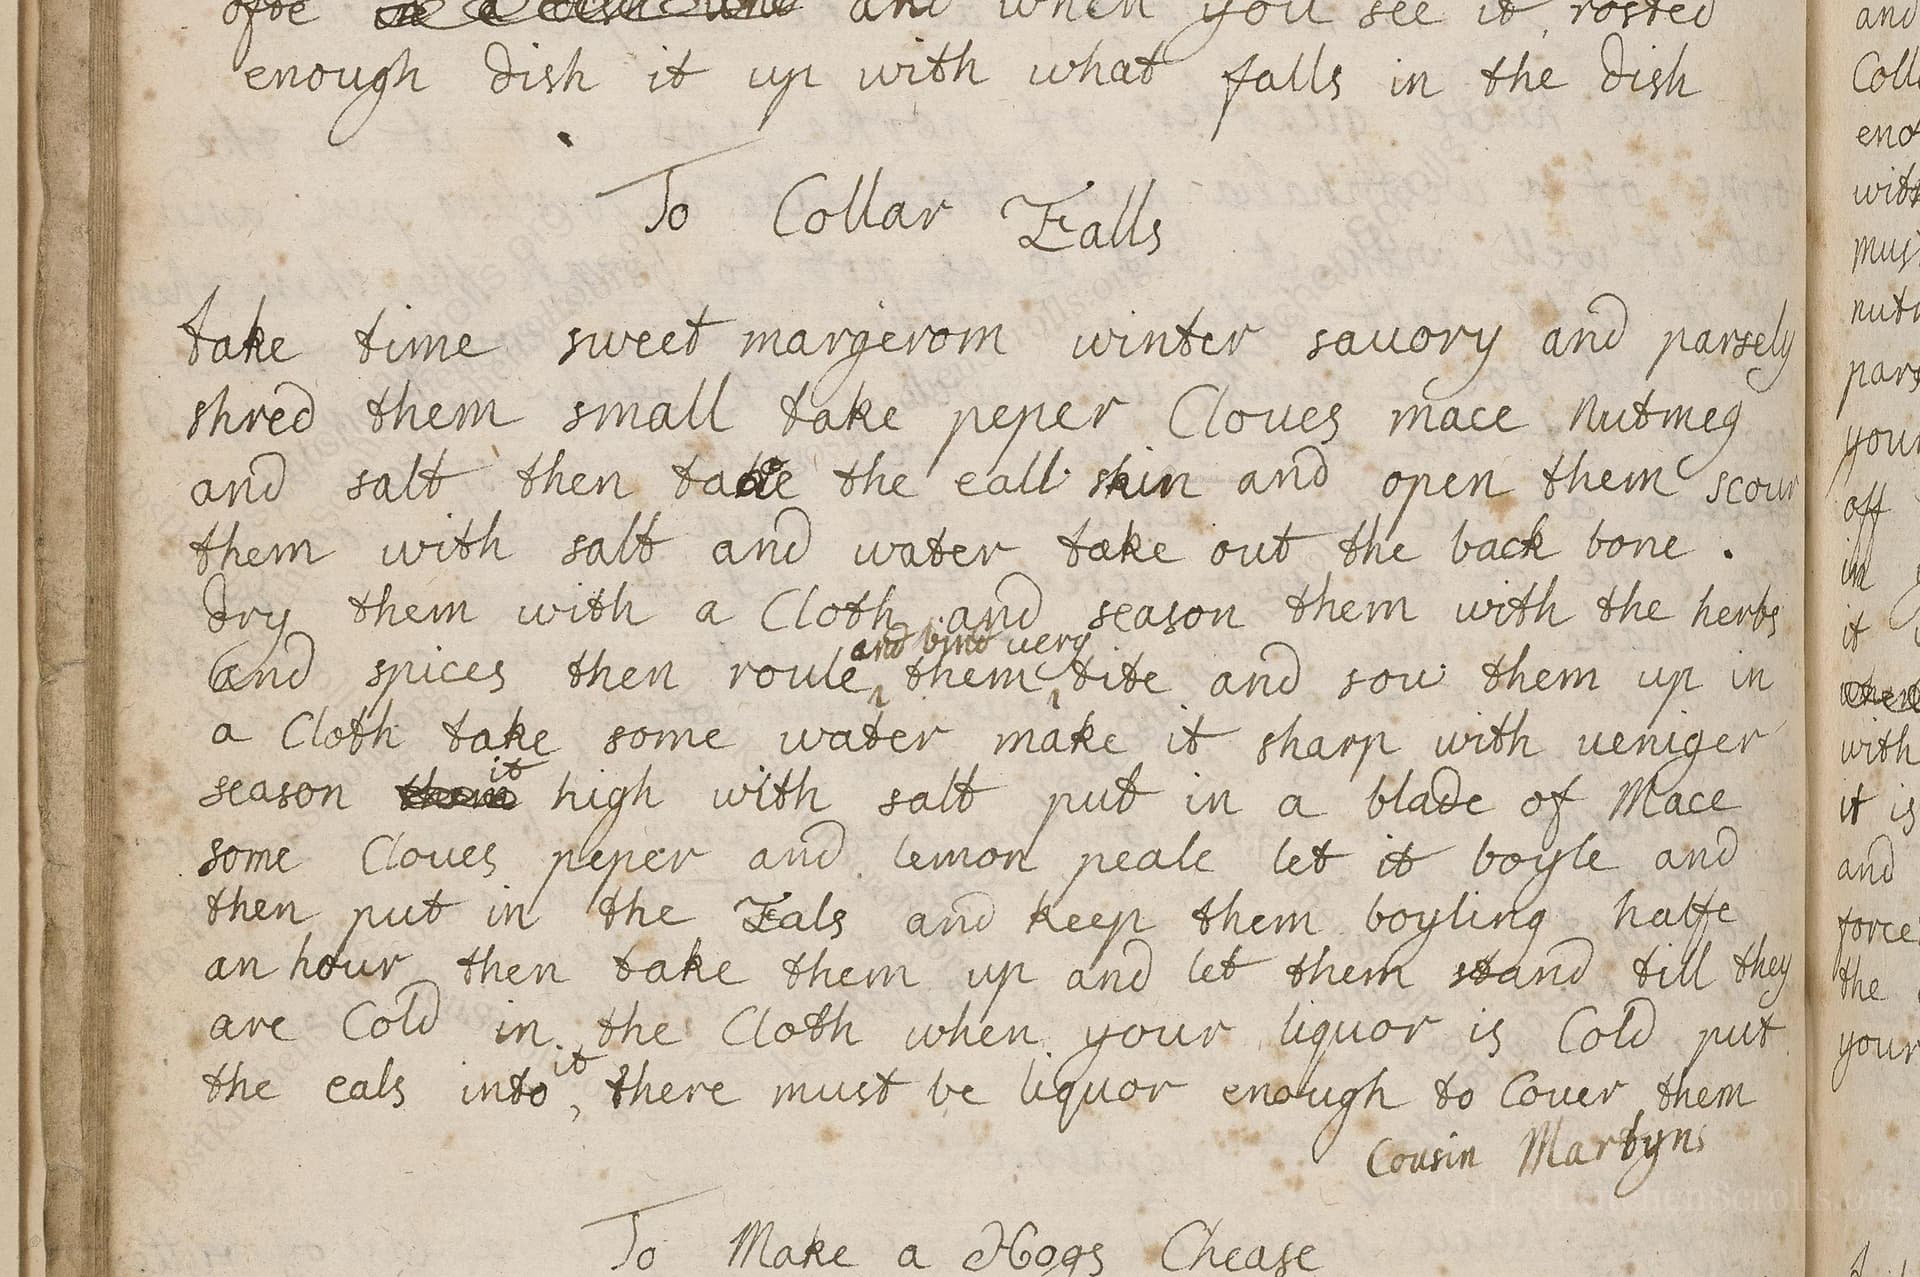 ofte and when you see it rosted
enough dish it up with what falls in the dish
To Collar Ealls
take time sweet margerom winter savory and parsely
shred them small take peper Cloves mace nutmeg
and salt then take the eall skin and open them scour
them with salt and water take out the back bone .
Dry them with a Cloth and season them with the herbs
and bind very
and spices then roule them tite and sow them up in
a Cloth take some water make it sharp with veniger
it
season them high with salt put in a blade of Mace
some Cloves peper and lemon peale let it boyle and
then put in the Eals and keep them boyling halfe
an hour then take them up and let them stand till they
are Cold in the Cloth when your liquor is Cold put
it
the eals into, there must be liquor enough to Cover them
Cousin Martyns
To Make a Hogs Chease
and
Colla
eno
with
must
nut
pars
your
off
in
it
with
it is
and
force
the
your